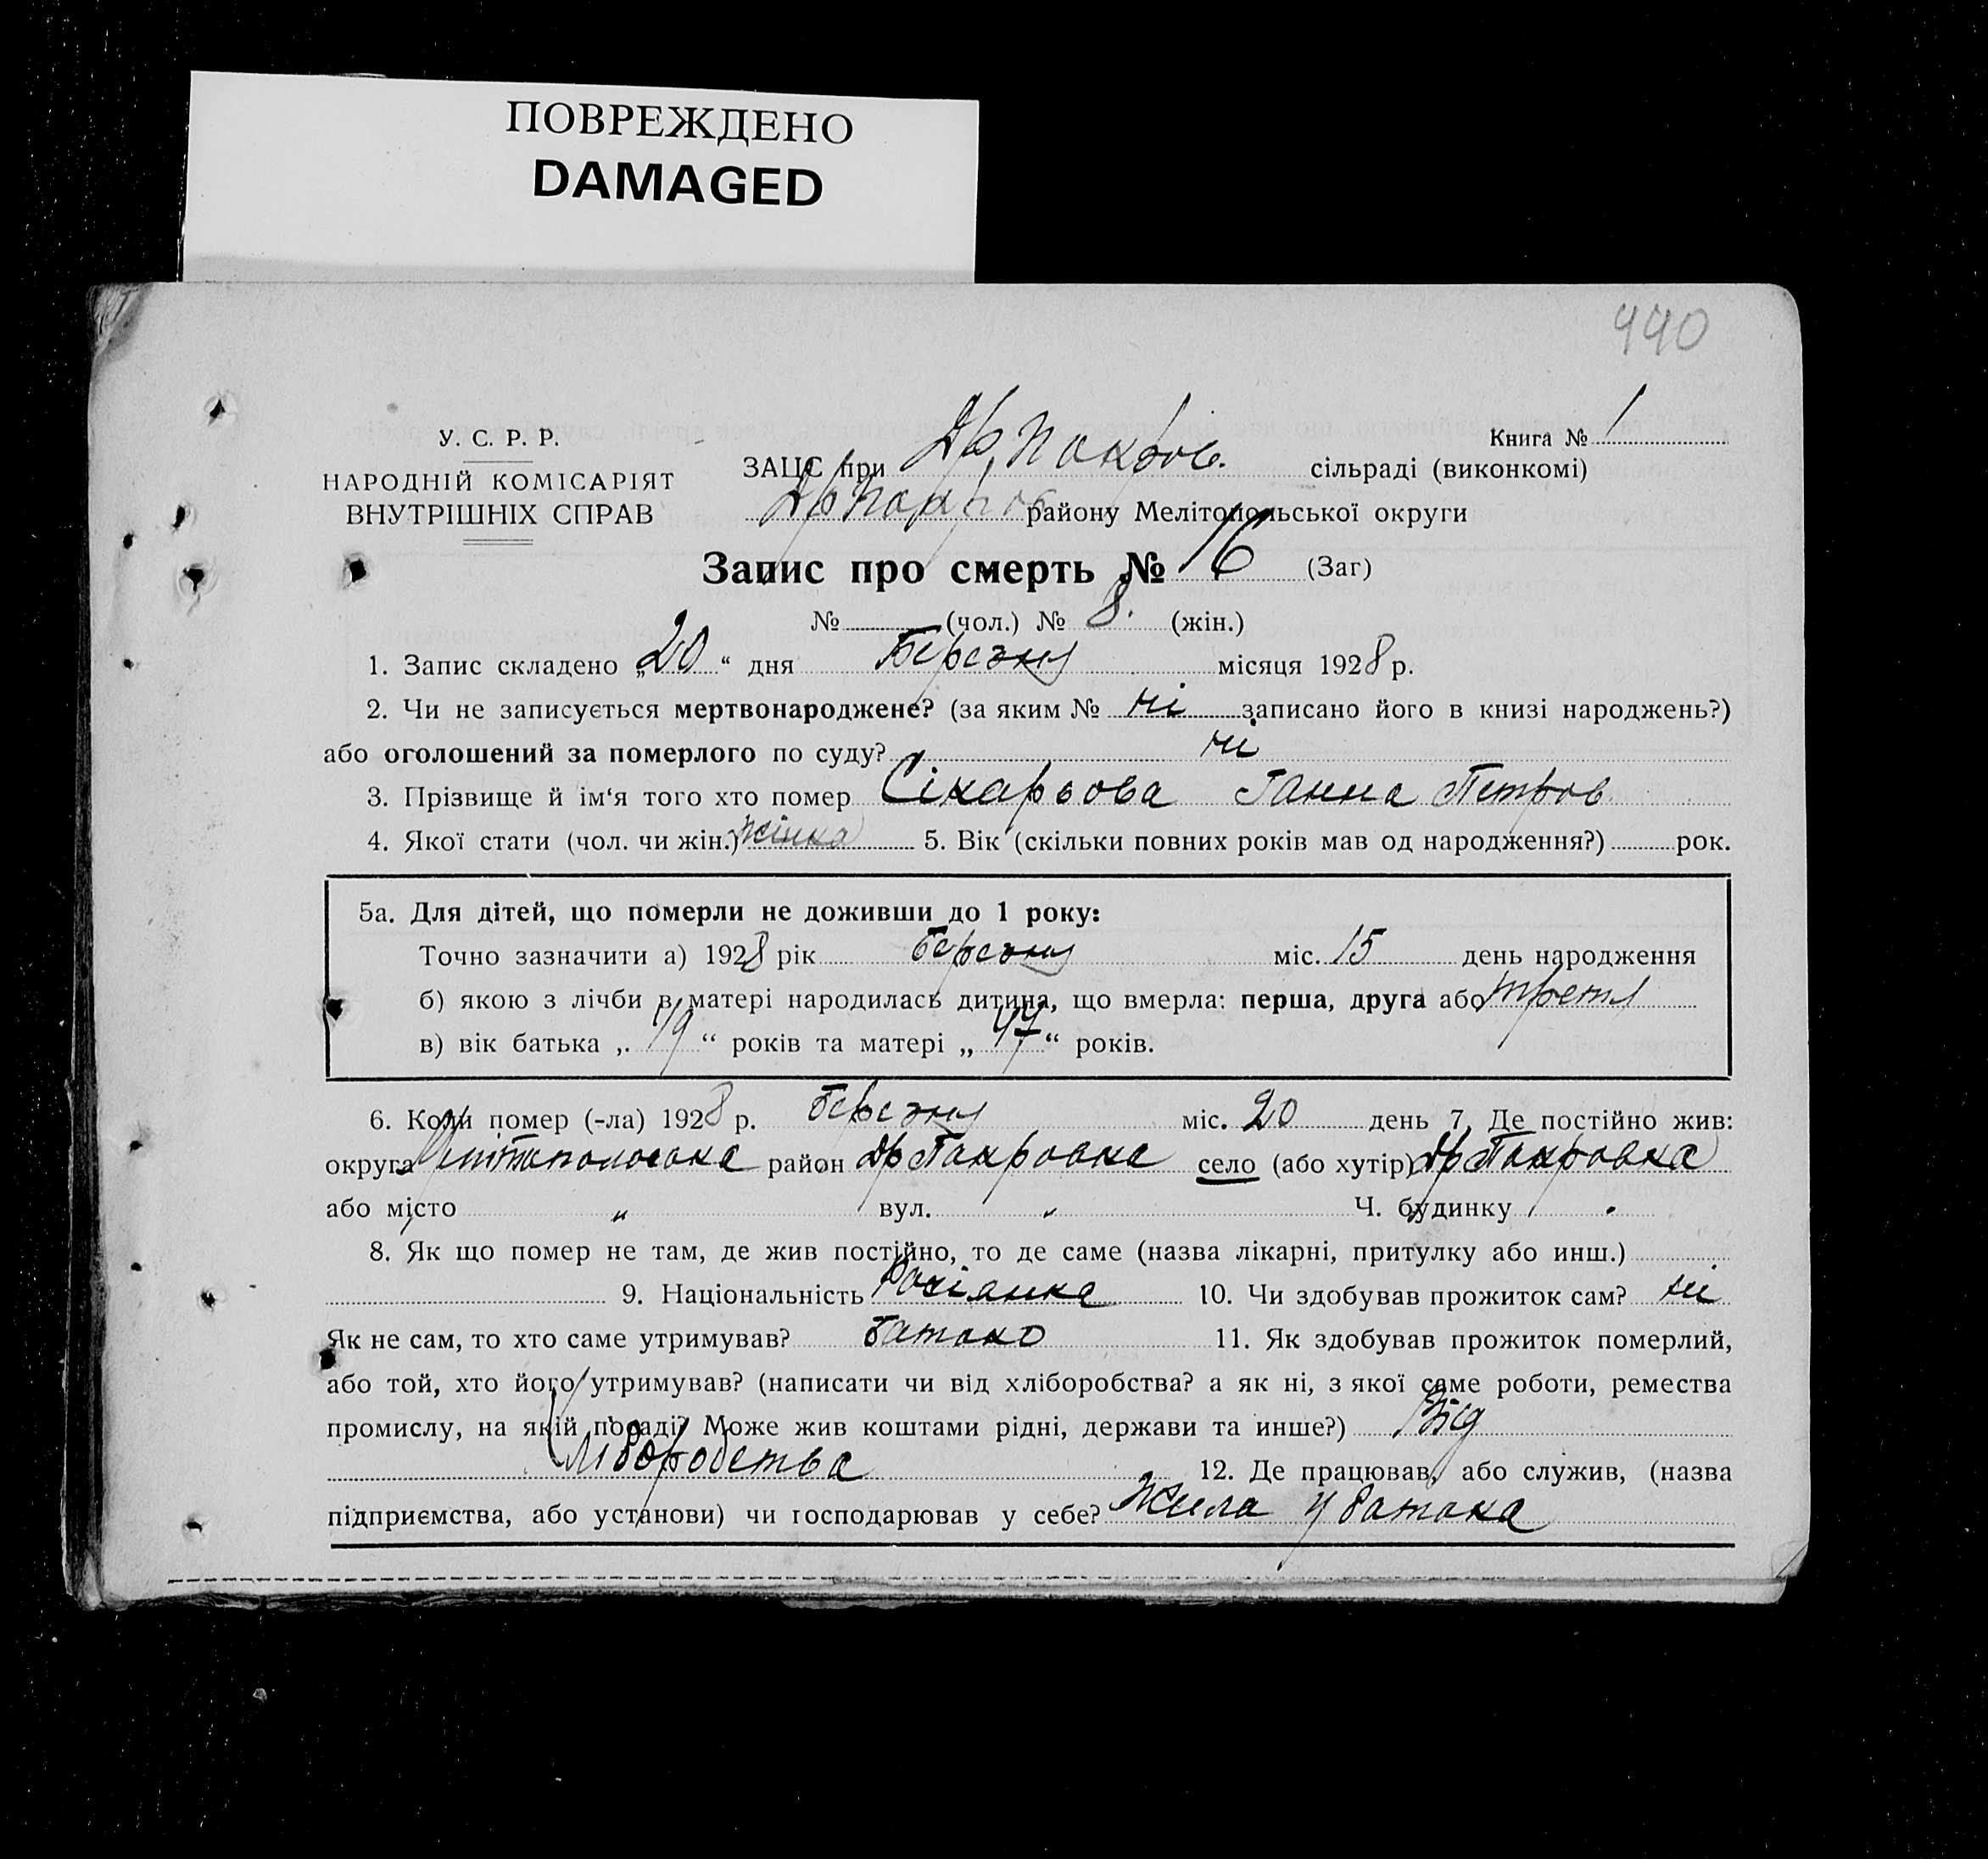 ПОВРЕЖДЕНО
DAMAGED
440
У. С. Р. Р.
НАРОДНІЙ КОМІСАРІЯТ
ВНУТРІШНІХ СПРАВ
Книга № 1
ЗАЦС при Др, Покров. сільраді (виконкомі)
Др Покров району Мелітопольської округи
Запис про смерть № 16 (Заг)
№ (чол.) № 8. (жін.)
1. Запис складено „20“ дня Березня місяця 1928 р.
2. Чи не записується мертвонароджене? (за яким № ні записано його в книзі народжень?)
або оголошений за померлого по суду? ні
3. Прізвище й ім‘я того хто помер Сікарьова Ганна Петров
4. Якої стати (чол. чи жін.) жінка 5. Вік (скільки повних років мав од народження?) рок.
5а. Для дітей, що померли не доживши до 1 року:
Точно зазначити а) 1928 рік березня міс. 15 день народження
б) якою з лічби в матері народилась дитина, що вмерла: перша, друга або третя
в) вік батька „ “ років та матері „ “ років.
6. Коли помер (-ла) 1928 р. березня міс. 20 день 7. Де постійно жив:
округа Мелітопольська район Др Покровка село (або хутір) Др Покровка
або місто „ вул. „ Ч. будинку
8. Як що помер не там, де жив постійно, то де саме (назва лікарні, притулку або инш.)
9. Національність Росіянка 10. Чи здобував прожиток сам? ні
Як не сам, то хто саме утримував? батько 11. Як здобував прожиток померлий,
або той, хто його утримував? (написати чи від хліборобства? а як ні, з якої саме роботи, ремества
промислу, на якій посаді? Може жив коштами рідні, держави та инше?) Від
хліборобства 12. Де працював, або служив, (назва
підприємства, або установи) чи господарював у себе? Жила у батька